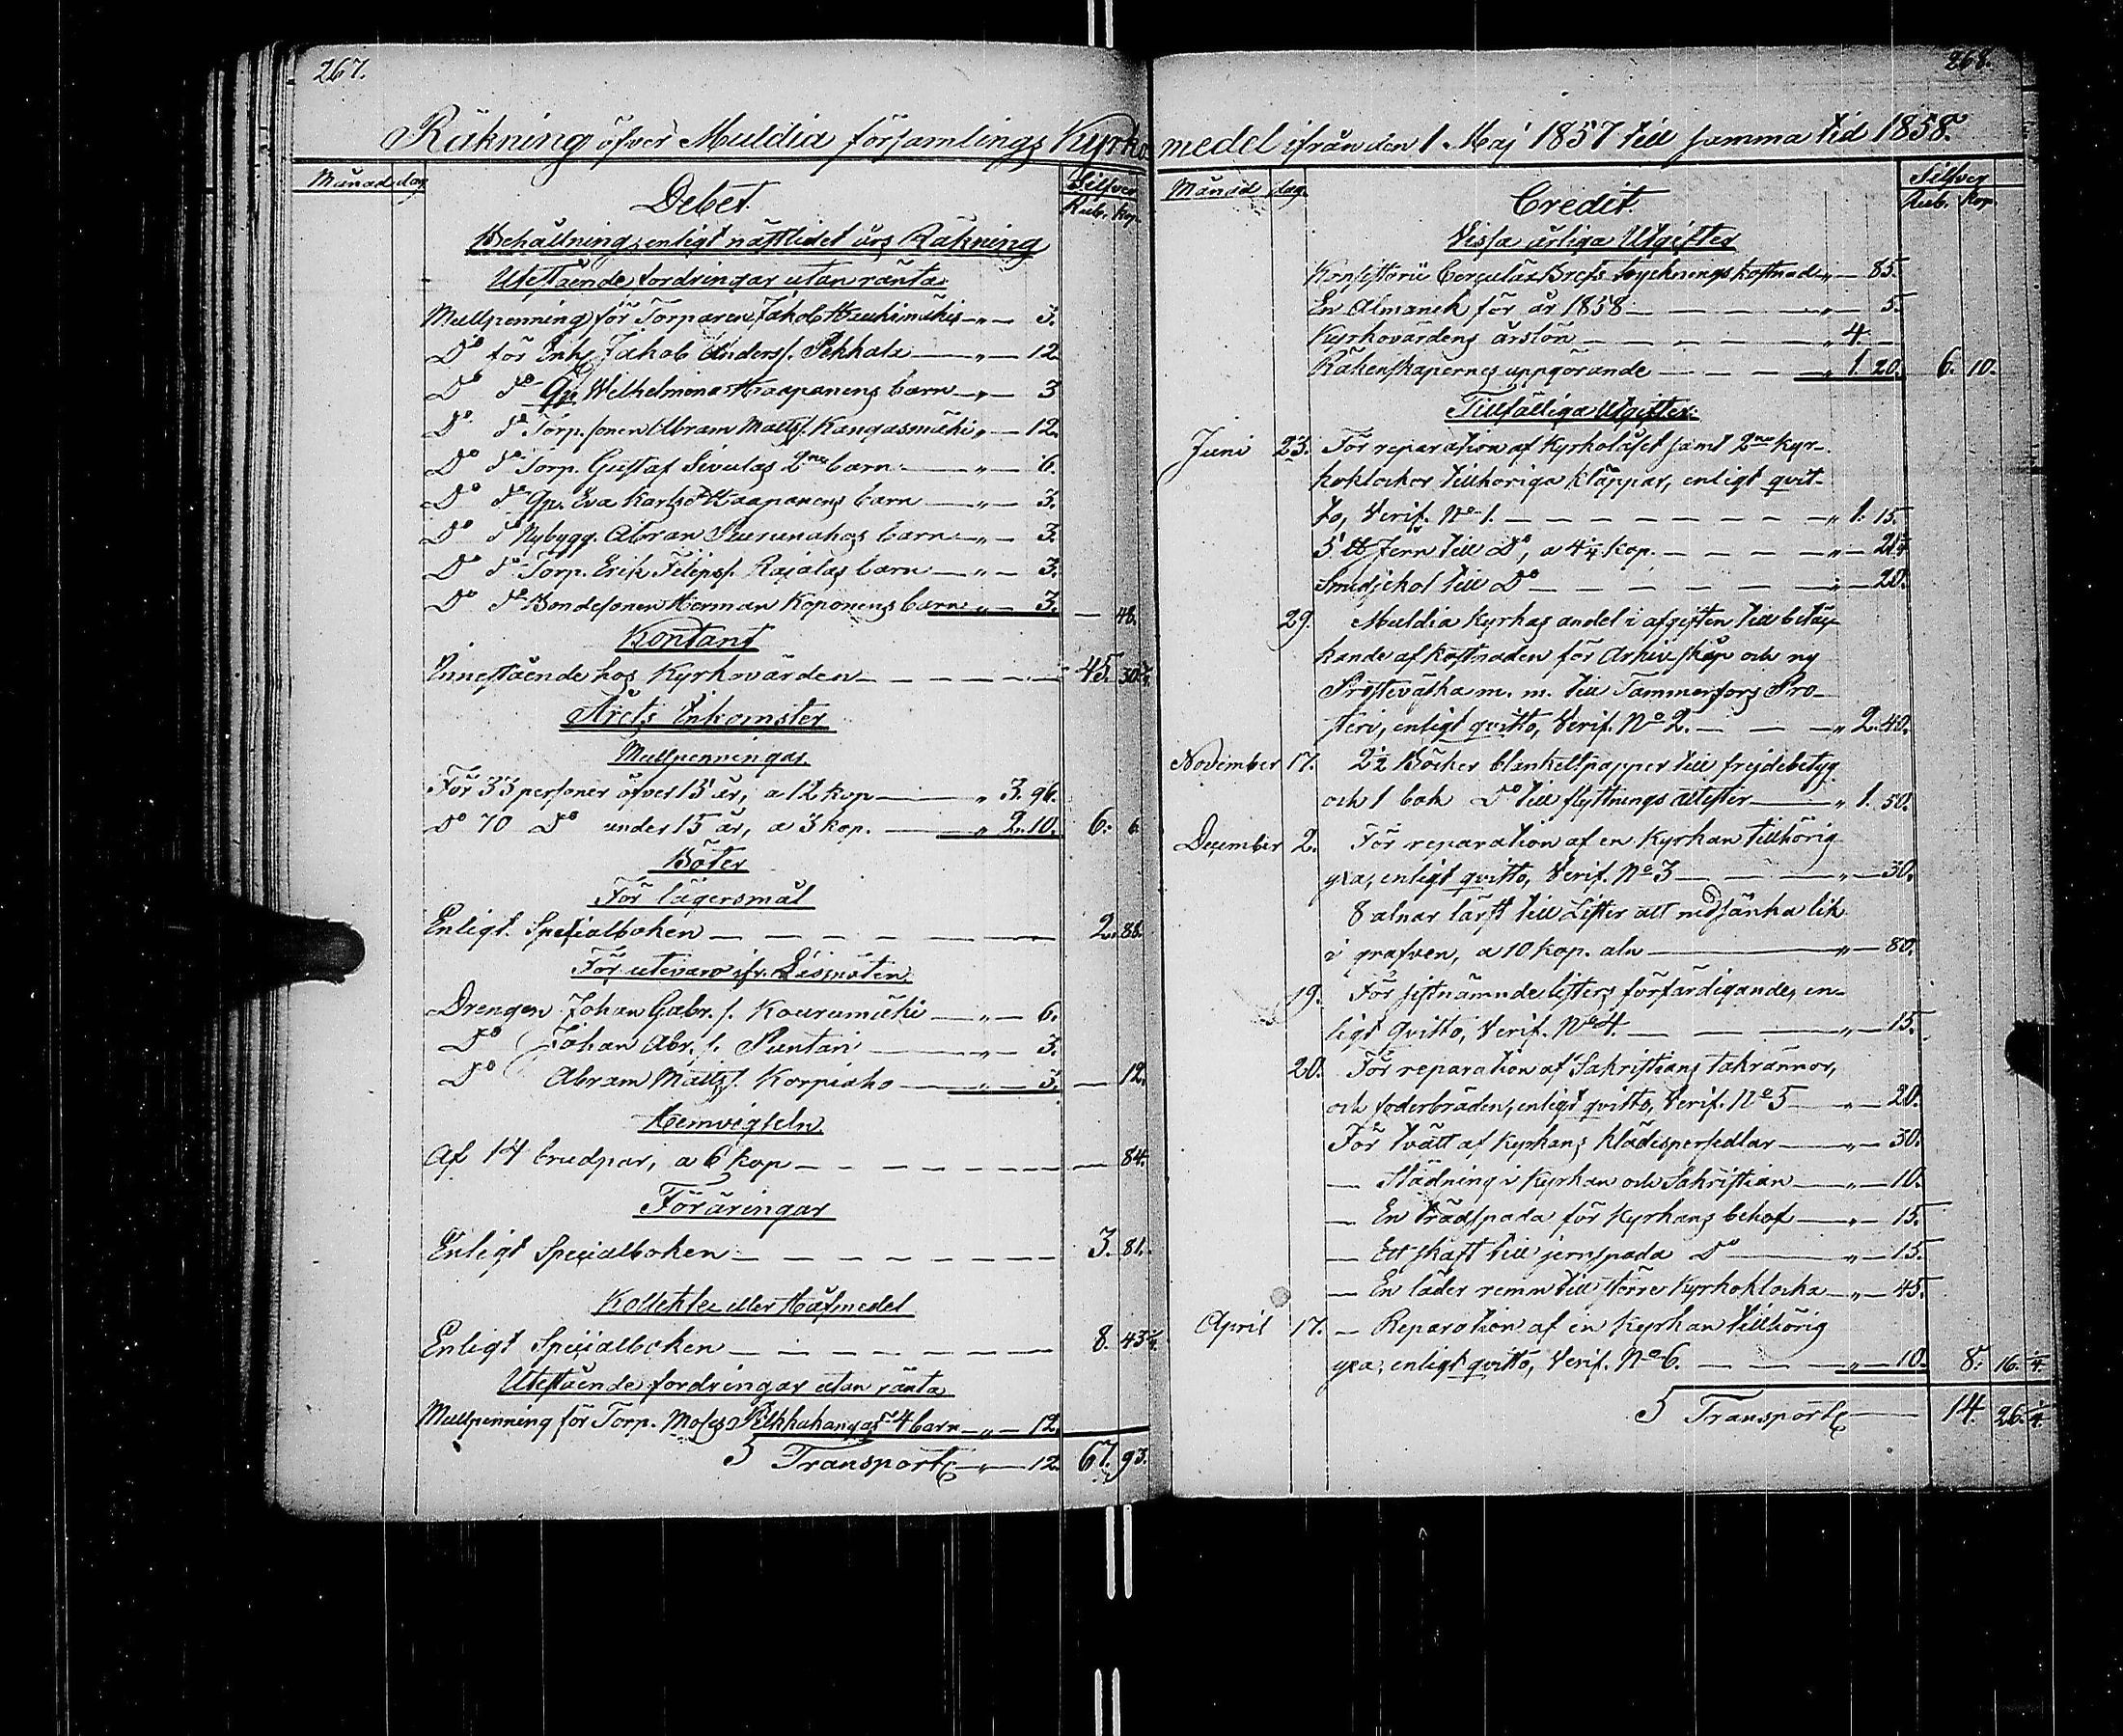 267.
Räkning öfver Muldia församlings Kyrko
Månad dag
Debet.
Silfver
Rub. Kop.
Behållning, enligt nästlidet års Räkning
Utestående fordringar utan ränta
Mullpenning för Torparen Jakob — „ — 3.
Do för Enkl. Jakob Anders s. Pekkala — „ — 12.
Do do Qp. Wilhelmina Haapanens barn — „ — 3
Do do Torp. sonen Abram Matts s. Kangasmäki „ — 12.
Do do Torp. Gustaf Sivulas 2ne barn — „ — 6.
Do do Qp. Eva Karls d. Haapanens barn — „ — 3.
Do do Nybygg. Abram barn — „ — 3.
Do do Torp. Erik Filips s. Rajalas barn — „ — 3.
Do do Bondesonen Herman Koponens barn „ — 3. — 48.
Kontant
Innestående hos Kyrkovärden — — — — — 45. 30 3/4.
Årets Inkomster
Mullpenningar
För 33 personer öfver 15 år, a 12 kop — „ 3. 96.
Do 70 Do under 15 år, a 3 kop. — „ 2. 10. 6. 6.
Böter
För lägersmål
Enligt Specialboken — — — — — — 2. 88.
För utevaro ifr. Läsmöten
Drengen Johan Gabr. s. Kouramäki — „ — 6.
Do Johan Abr. s. Puntari — „ — 3.
Do Abram Matts s. Korpiaho — „ — 3. — 12.
Hemvigseln
Af 14 brudpar, a 6 kop — — — — — — — 84.
Föräringar
Enligt Specialboken — — — — — — — 3. 81.
Kollekter eller Håfmedel
Enligt Specialboken — — — — — — — 8. 43 1/4.
Utestående fordringar utan ränta
Mullpenning för Torp. Moses 4 barn — „ — 12.
S Transport — „ — 12. 67. 93.
268.
medel ifrån den 1 Maj 1857 till samma tid 1858.
Månad dag.
Credit.
Silfver
Rub. Kop.
Vissa årliga Utgifter
Konsistorii Cirkulär Brefs tryckningskostnad „ — 85.
En Almanck för år 1858 — — — — „ — 5.
Kyrkovärdens årslön — — — — — „ 4. —
Räkenskapernes uppgörande — — — „ 1. 20. 6. 10.
Tillfälliga Utgifter.
Juni 23. För reparation af Kyrkolåset samt 2ne Kyr-
koklockor tillhöriga kläppar, enligt qvit-
to, Verif. No 1. — — — — — — — — „ 1. 15.
5 ℔ Jern till Do, a 4 1/4 kop. — — — — „ — 21 1/4
Smidjekol till Do — — — — — — „ — 20.
29. Muldia Kyrkas andel i afgiften till betäc-
kande af kostnaden för Arkiv skåp och ny
Prostväska m. m. till Tammerfors Pro-
steri, enligt qvitto, Verif. No 2. — — — „ 2. 40.
November 17. 2 1/2 Böcker blankettpapper till frejdebetyg
och 1 bok Do till flyttnings attester — „ 1. 50.
December 2. För reparation af en Kyrkan tillhörig
yxa, enligt qvitto, Verif. No 3 — — — „ — 30.
8 alnar lärft till Lister att nedsänka lik
i grafven, a 10 kop. aln — „ — 80.
19. För sistnämnde listers förfärdigande, en-
ligt qvitto, Verif. No 4. — — — „ — 15.
20. För reparation af Sakristians takrännor,
och foderbräden, enligt qvitto, Verif. No 5 — „ — 20.
För tvätt af Kyrkans klädespersedlar — „ — 30.
— Städning i Kyrkan och Sakristian — „ — 10.
— En trädspada för Kyrkans behof — „ — 15.
— Ett skaft till jernspada Do — „ — 15.
— En läder remm till större Kyrkoklocka — „ — 45.
April 17. — Reparation af en Kyrkan tillhörig
yxa, enligt qvitto, Verif. No 6. — — — „ — 10. 8. 16. 1/4.
S Transport — 14. 26. 1/4.